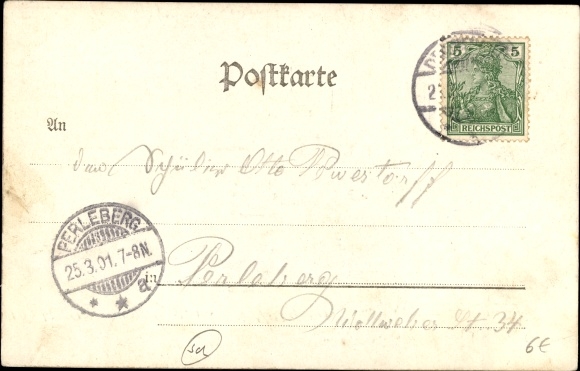 Postkarte
5 5
REICHSPOST
2
An
dem Schüler Otto
PERLEBERG
25.3.01.7-8N.
a
in Perleberg
Wollweber St. 34
6€